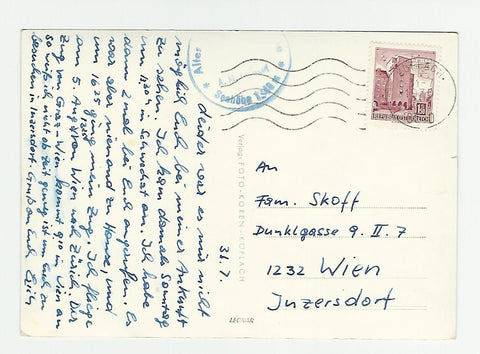 31.7.
Leider war es mir nicht
möglich Euch bei meiner Ankunft
zu sehen. Ich kam damals Sonntag
um 11 30h in Schwechat an. Ich habe
dann 2 mal bei Euch angerufen. Es
war aber niemand zu Hause, und
um 16 25 ging mein Zug. Ich fliege
am 5. August von Wien nach Zürich. Der
Zug von Graz-Wien kommt 9 10 in Wien an
so weiß ich nicht ob Zeit genug ist um Euch zu
besuchen in Inzersdorf. Grüßen Euch Erich
Verlag: FOTO-KOREN-KÖFLACH
LEOPAR
REPUBLIK ÖSTERREICH
An
Fam. Skoff
Dunklgasse 9. II. 7
1232 Wien
Inzersdorf